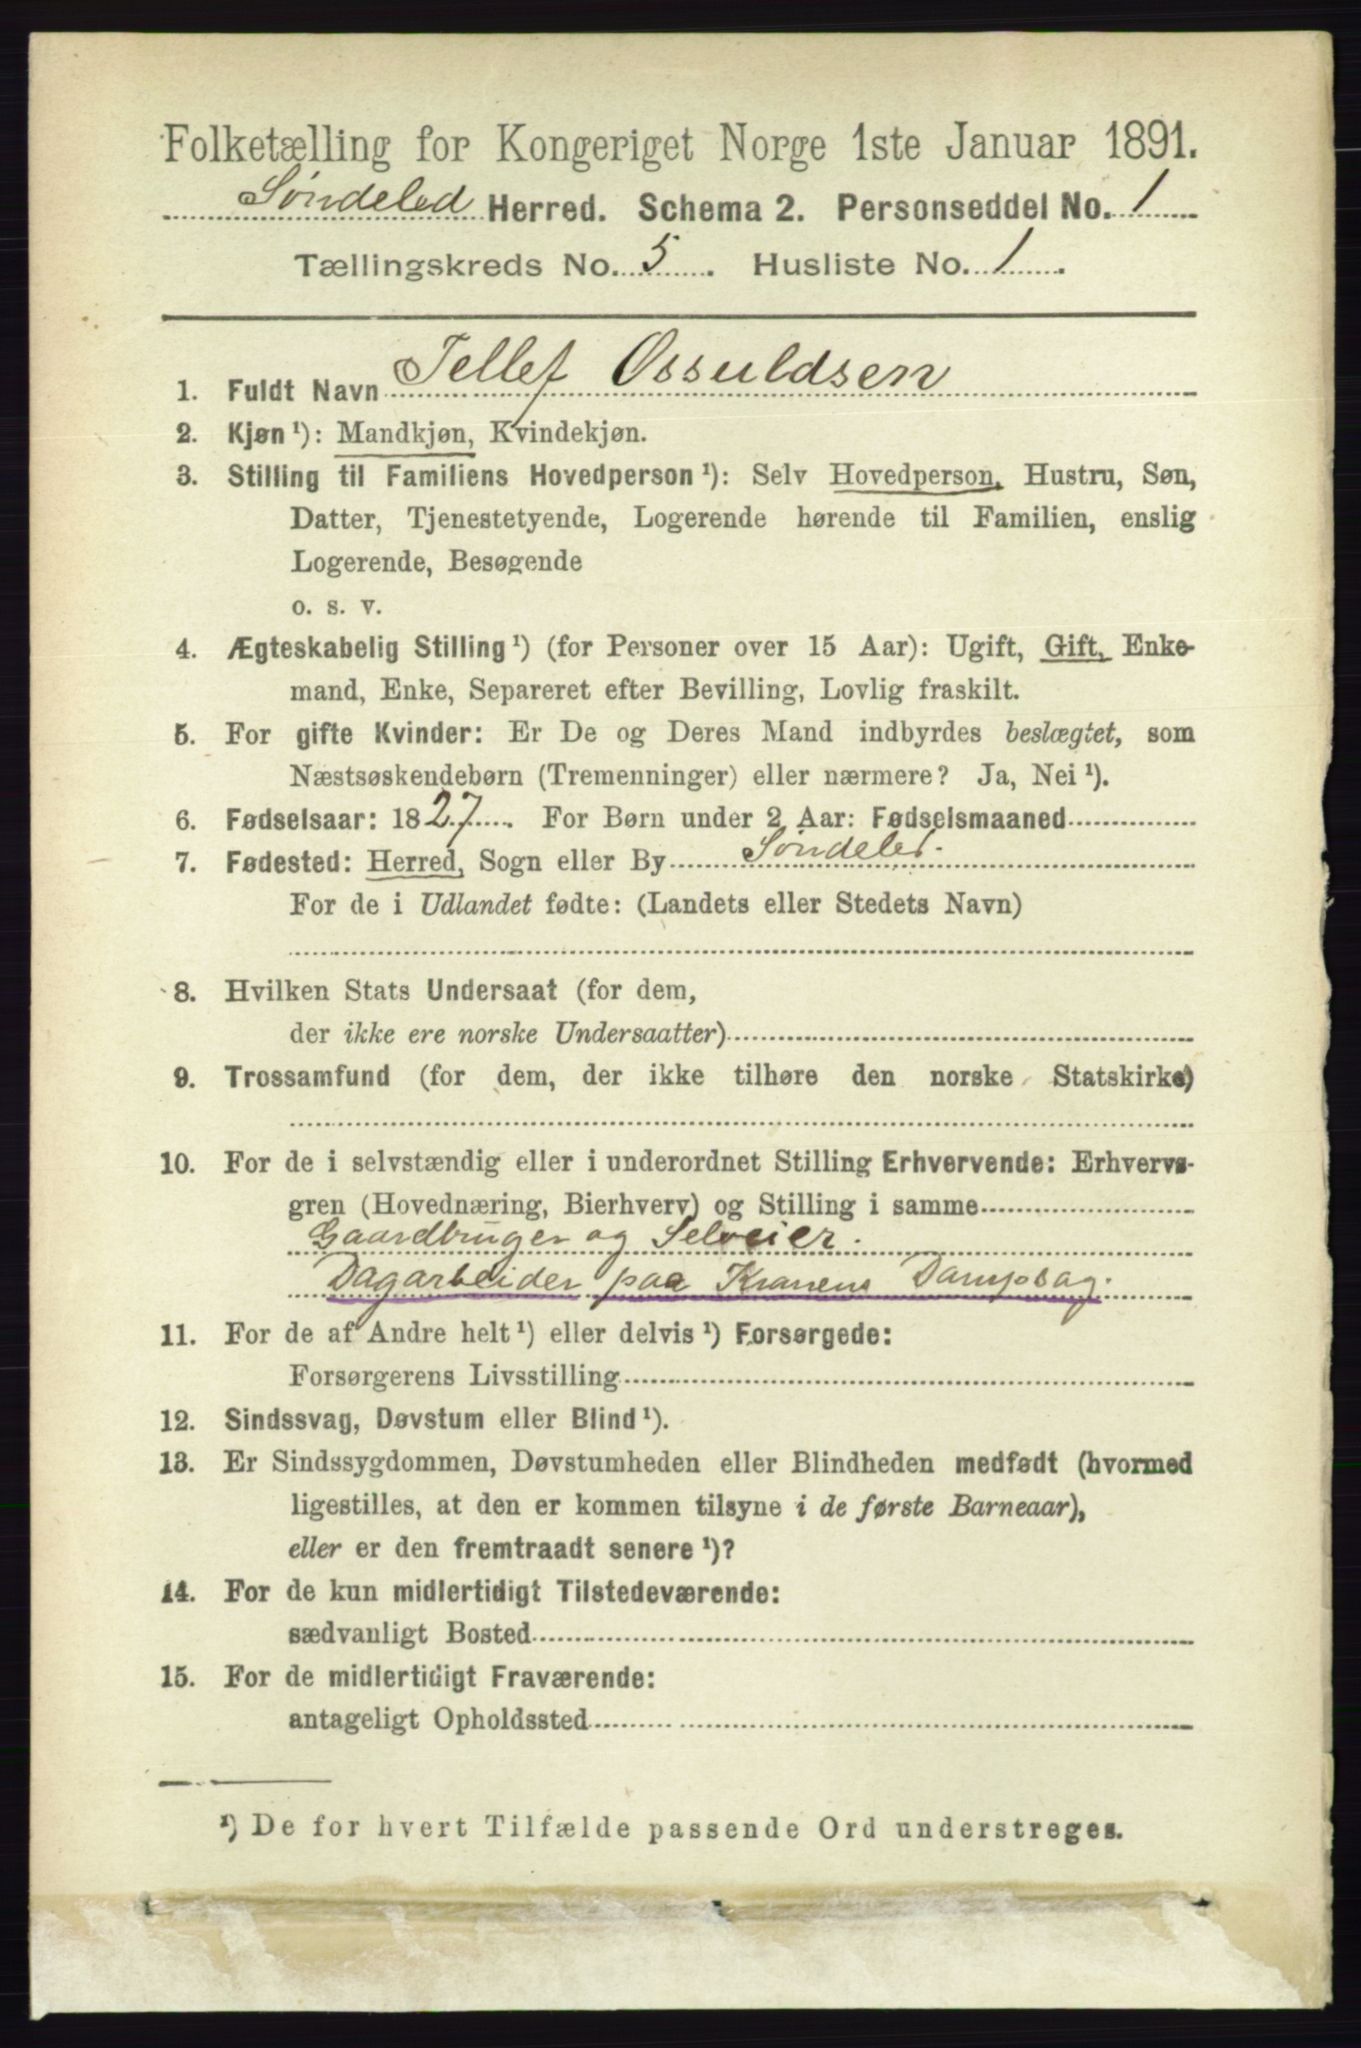 Folketælling for Kongeriget Norge 1ste Januar 1891.
Søndeled Herred. Schema 2. Personseddel No. 1
Tællingskreds No. 5. Husliste No. 1.
1. Fuldt Navn Tellef Ossuldsen
2. Kjøn¹): Mandkjøn, Kvindekjøn.
3. Stilling til Familiens Hovedperson¹): Selv Hovedperson, Hustru, Søn,
Datter, Tjenestetyende, Logerende hørende til Familien, enslig
Logerende, Besøgende
o. s. v.
4. Ægteskabelig Stilling¹) (for Personer over 15 Aar): Ugift, Gift, Enke-
mand, Enke, Separeret efter Bevilling, Lovlig fraskilt.
5. For gifte Kvinder: Er De og Deres Mand indbyrdes beslægtet, som
Næstsøskendebørn (Tremenninger) eller nærmere? Ja, Nei¹).
6. Fødselsaar: 1827. For Børn under 2 Aar: Fødselsmaaned
7. Fødested: Herred, Sogn eller By Søndeled.
For de i Udlandet fødte: (Landets eller Stedets Navn)
8. Hvilken Stats Undersaat (for dem,
der ikke ere norske Undersaatter)
9. Trossamfund (for dem, der ikke tilhøre den norske Statskirke)
10. For de i selvstændig eller i underordnet Stilling Erhvervende: Erhvervs-
gren (Hovednæring, Bierhverv) og Stilling i samme
Gaardbruger og Selveier.
Dagarbeider paa Kranens Dampsag.
11. For de af Andre helt¹) eller delvis¹) Forsørgede:
Forsørgerens Livsstilling
12. Sindssvag, Døvstum eller Blind¹).
13. Er Sindssygdommen, Døvstumheden eller Blindheden medfødt (hvormed
ligestilles, at den er kommen tilsyne i de første Barneaar),
eller er den fremtraadt senere¹)?
14. For de kun midlertidigt Tilstedeværende:
sædvanligt Bosted
15. For de midlertidigt Fraværende:
antageligt Opholdssted
¹) De for hvert Tilfælde passende Ord understreges.